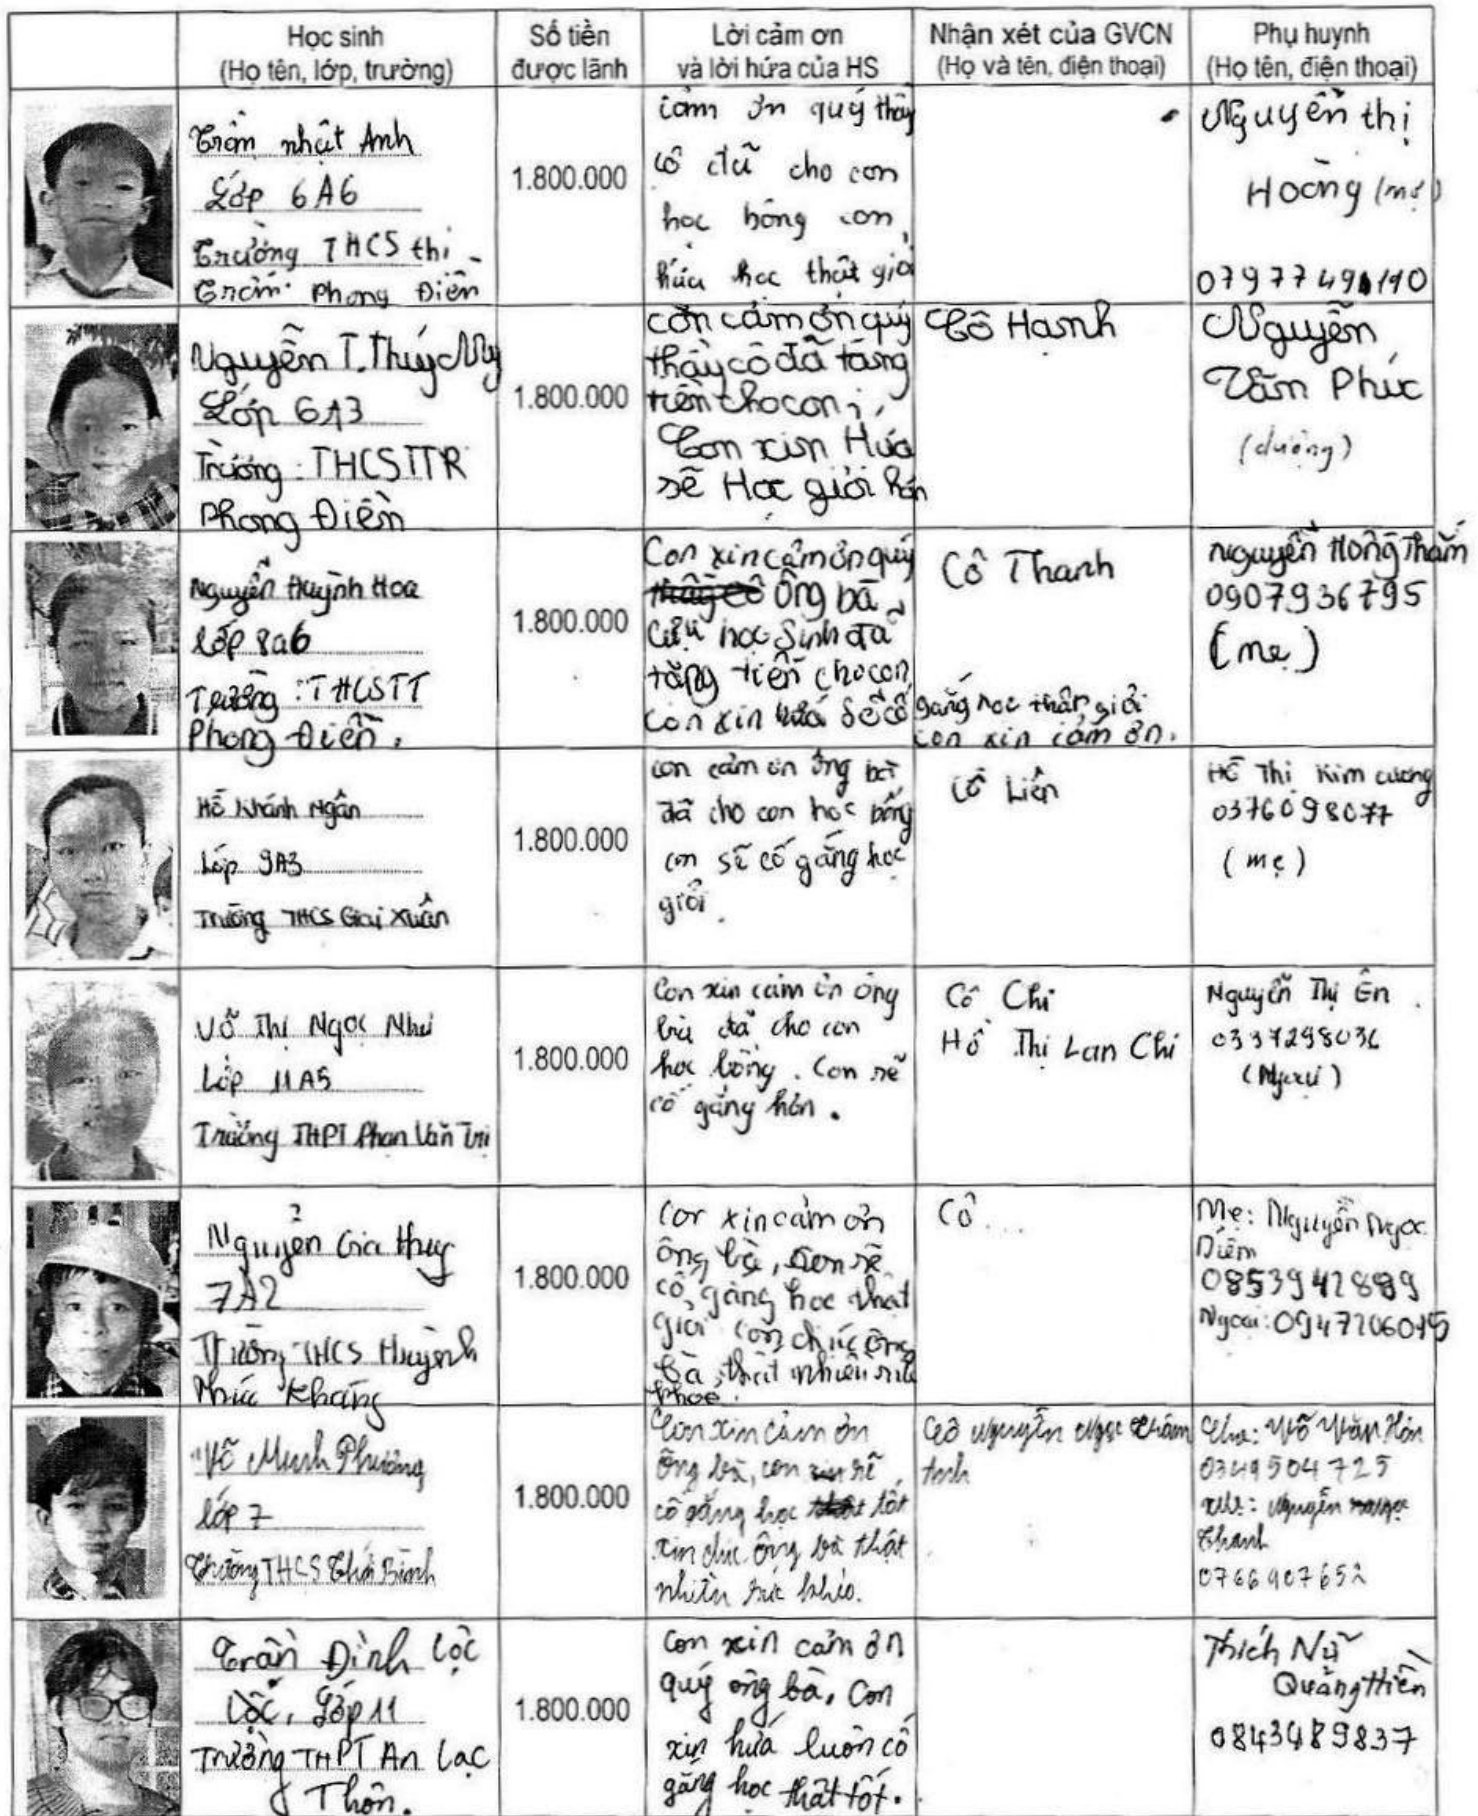 Học sinh
(Họ tên, lớp, trường)
Số tiền
được lãnh
Lời cảm ơn
và lời hứa của HS
Nhận xét của GVCN
(Họ và tên, điện thoại)
Phụ huynh
(Họ tên, điện thoại)
Trần nhật Anh
Lớp 6A6
Trường THCS thị
Trấn Phong Điền
1.800.000
cảm ơn quý thầy
cô đã cho con
học bỗng con
hứa học thật giỏi
Nguyễn thị
Hoàng (mẹ)
Nguyễn T. Thúy My
Lớp 6A3
Trường: THCSTTR
Phong Điền
1.800.000
con cảm ơn quý
thầy cô đã tăng
tiền cho con,
Con xin Hứa
sẽ Học giỏi hơn
Cô Hạnh
Nguyễn
Văn Phúc
(dượng)
Nguyễn Huỳnh Hoa
Lớp 8a6
Trường: THCSTT
Phong Điền.
1.800.000
Con xin cảm ơn quý
thầy cô ông bà
Cựu học Sinh đã
tặng tiền cho con,
con xin hứa sẽ cố gắng học thật giỏi
con xin cảm ơn.
Cô Thanh
Nguyễn Hồng Thắm
0907936795
(mẹ)
Hồ Khánh Ngân
Lớp 9A3
Trường THCS Giai Xuân
1.800.000
con cảm ơn ông bà
đã cho con học bổng
con sẽ cố gắng học
giỏi.
Cô Liên
Hồ Thị Kim cương
0376098077
(mẹ)
Võ Thị Ngọc Như
Lớp 11A5
Trường THPT Phan Văn Trị
1.800.000
Con xin cảm ơn ông
bà đã cho con
học bổng. Con sẽ
cố gắng hơn.
Cô Chi
Hồ Thị Lan Chi
Nguyễn Thị Én
0337298036
(Ngoại)
Nguyễn Gia Huy
7A2
Trường THCS Huỳnh
Thúc Kháng
1.800.000
Con xin cảm ơn
ông bà, con sẽ
cố gắng học thật
giỏi con chúc ông
bà thật nhiều sức
khỏe.
Cô...
Mẹ: Nguyễn Ngọc
Diễm
Ngoại:
Võ Minh Phương
lớp 7
Trường THCS Thới Bình
1.800.000
Con xin cảm ơn
Ông bà, con xin sẽ
cố gắng học thật tốt
xin chúc ông bà thật
nhiều sức khỏe.
Cô Nguyễn Ngọc Trâm
Anh
Cha: Võ Văn
0349504725
Mẹ: Nguyễn
Thanh
0766907652
Trần Đình Lộc
Lộc, Lớp 11
Trường THPT An Lạc
Thôn.
1.800.000
Con xin cảm ơn
quý ông bà. Con
xin hứa luôn cố
gắng học thật tốt.
Thích Nữ
Quảng Hiền
0843489837